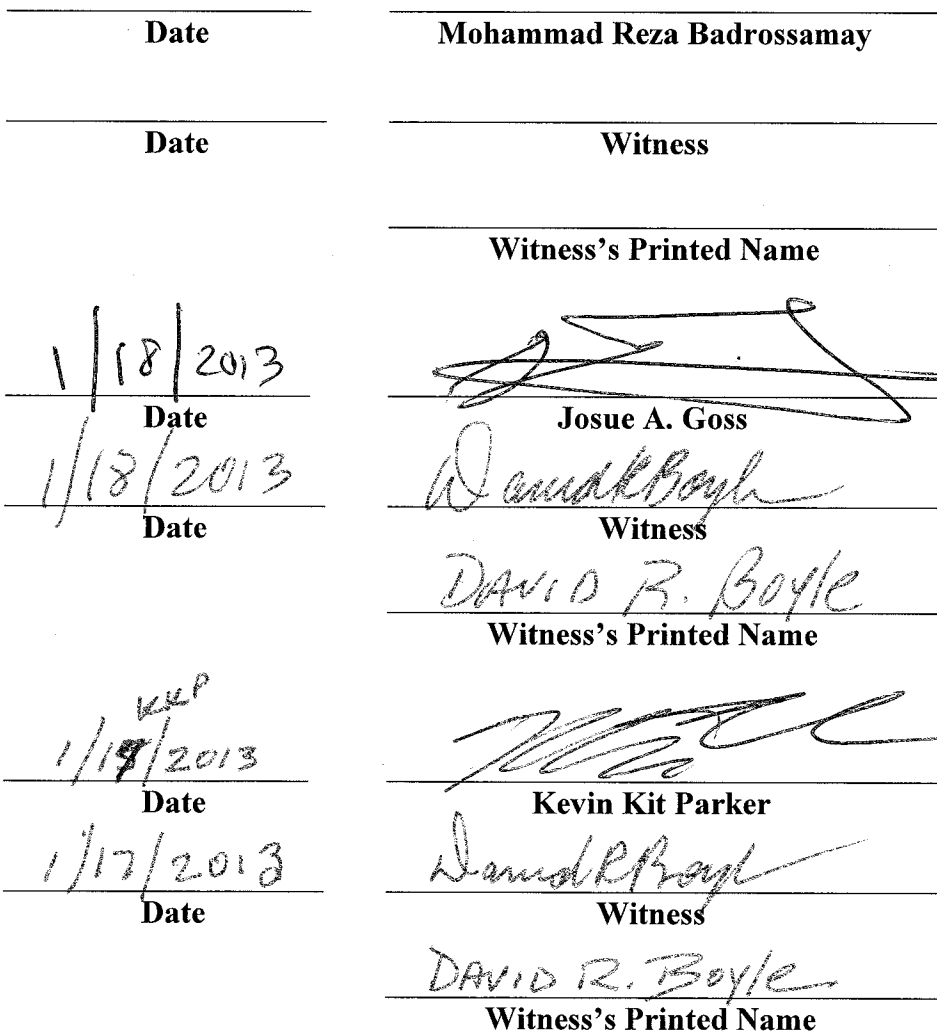 Date Mohammad Reza Badrossamay
Date Witness
Witness's Printed Name
1/18/2013
Date Josue A. Goss
1/18/2013 David R Boyle
Date Witness
DAVID R. BOYLE
Witness's Printed Name
KKP
1/17/2013
Date Kevin Kit Parker
1/17/2013 David R Boyle
Date Witness
DAVID R. BOYLE
Witness's Printed Name